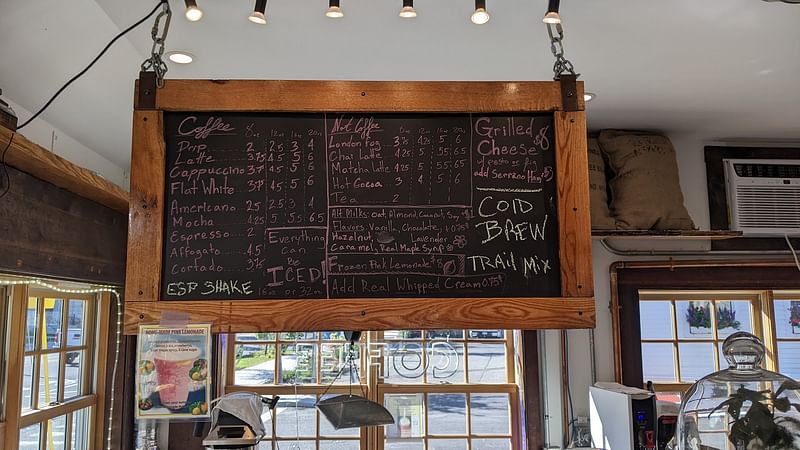 Coffee 8oz 12oz 16oz 20oz
Drip 2 2.5 3 4
Latte 3.75 4.5 5 6
Cappuccino 3.75 4.5 5 6
Flat White 3.75 4.5 5 6
Americano 2 2.5 3 4
Mocha 4.25 5 5.5 6.5
Espresso 2
Affogato 4.5
Cortado 3.75
ESP SHAKE
Everything
Can
Be
ICED!
16oz or 32oz
Not Coffee 8oz 12oz 16oz 20oz
London Fog 3.75 4.25 5 6
Chai Latte 4.25 5 5.5 6.5
Matcha Latte 4.25 5 5.5 6.5
Hot Cocoa 3 4 5 6
Tea 2
Alt Milks: Oat, Almond, Coconut, Soy
Flavors: Vanilla, Chocolate,
Hazelnut, Lavender
Caramel, Real Maple Syrup
Frozen Pink Lemonade
Add Real Whipped Cream 0.75
Grilled
Cheese
w/ pesto or fig
add Serrano Ham
COLD
BREW
TRAIL MIX
HOME-MADE PINK LEMONADE
COFFEE